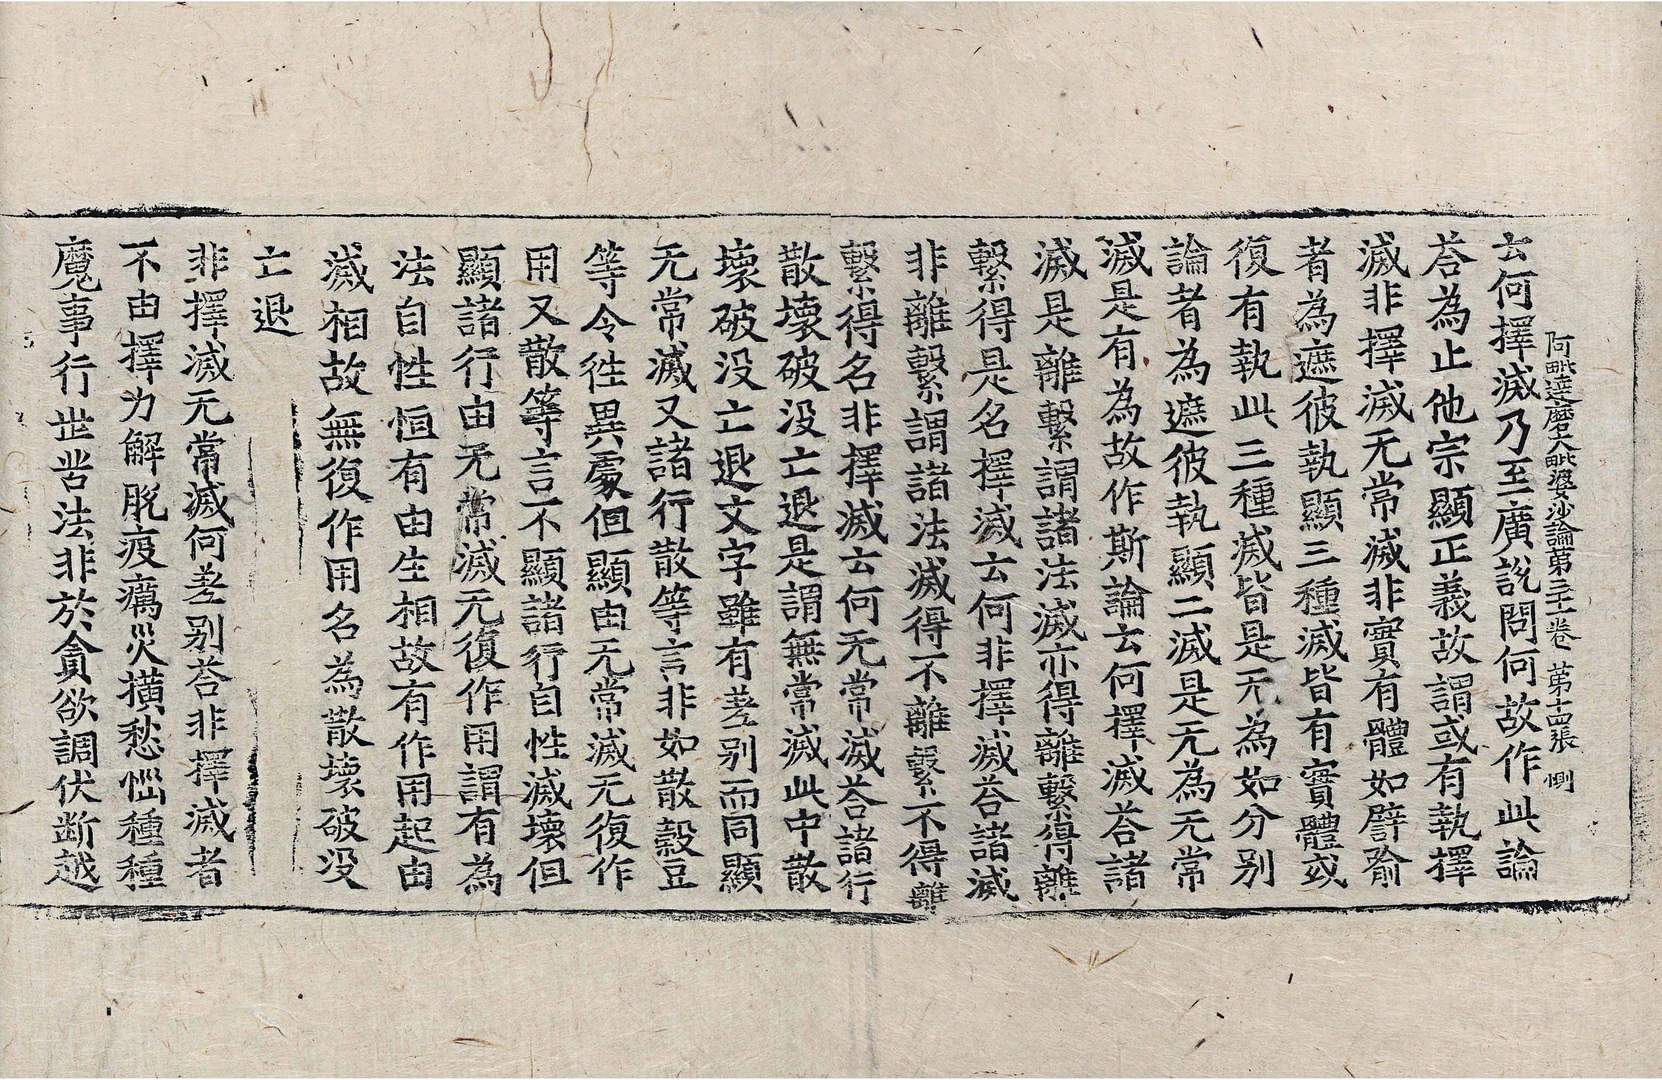 阿毗達磨大毗婆沙論第三十一卷 第十四張 惻
云何擇滅乃至廣說問何故作此論
荅為止他宗顯正義故謂或有執擇
滅非擇滅无常滅非實有體如譬喻
者為遮彼執顯三種滅皆有實體或
復有執此三種滅皆是无為如分別
論者為遮彼執顯二滅是无為无常
滅是有為故作斯論云何擇滅荅諸
滅是離繫謂諸法滅亦得離繫得離
繫得是名擇滅云何非擇滅荅諸滅
非離繫謂諸法滅得不離繫不得離
繫得名非擇滅云何无常滅荅諸行
散壞破没亡退是謂無常滅此中散
壞破没亡退文字雖有差别而同顯
无常滅又諸行散等言非如散穀豆
等令往異處但顯由无常滅无復作
用又散等言不顯諸行自性滅壞但
顯諸行由无常滅无復作用謂有為
法自性恒有由生相故有作用起由
滅相故無復作用名為散壞破没
亡退
非擇滅无常滅何差别荅非擇滅者
不由擇力解脫疫癘災橫愁惱種種
魔事行世苦法非於貪欲調伏断越